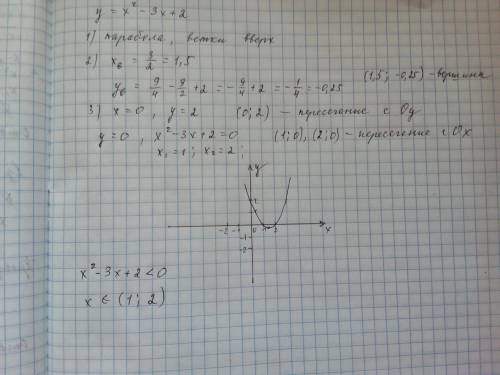 y = x² - 3x + 2
1) парабола, ветки вверх
2) xв = 3/2 = 1,5
yв = 9/4 - 9/2 + 2 = -9/4 + 2 = -1/4 = -0,25 (1,5; -0,25) - вершина
3) x = 0, y = 2 (0; 2) - пересечение с Oy
y = 0, x² - 3x + 2 = 0 (1; 0), (2; 0) - пересечение с Ox
x₁ = 1; x₂ = 2;
y
-2 -1 0 1 2 x
-1
-2
x² - 3x + 2 < 0
x ∈ (1; 2)